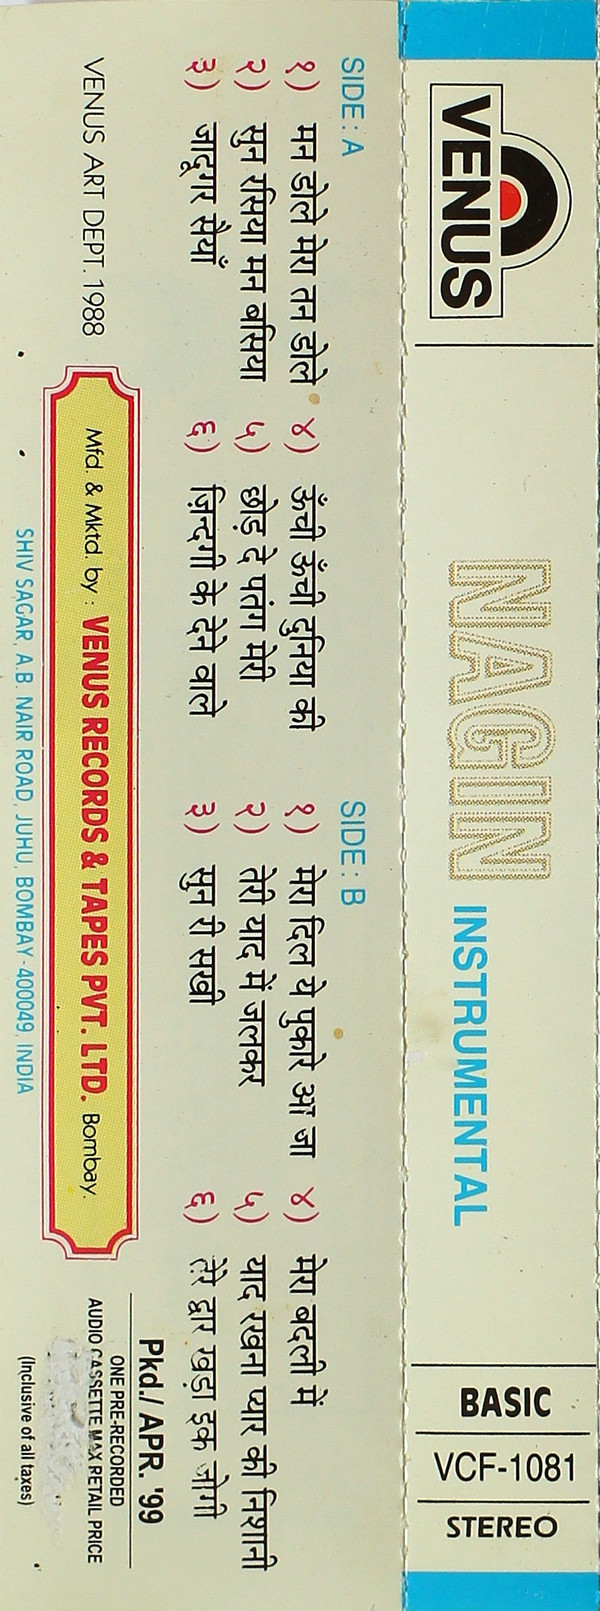 VENUS
NAGIN INSTRUMENTAL
BASIC
VCF-1081
STEREO
SIDE: A
१) मन डोले मेरा तन डोले
२) सुन रसिया मन बसिया
३) जादूगर सैयाँ
४) ऊँची ऊँची दुनिया की
५) छोड़ दे पतंग मेरी
६) ज़िन्दगी के देने वाले
SIDE: B
१) मेरा दिल ये पुकारे आ जा
२) तेरी याद में जलकर
३) सुन री सखी
४) मेरा बदली में
५) याद रखना प्यार की निशानी
६) तेरे द्वार खड़ा इक जोगी
VENUS ART DEPT. 1988
Mfd. & Mktd. by : VENUS RECORDS & TAPES PVT. LTD. Bombay.
SHIV SAGAR, A.B. NAIR ROAD, JUHU, BOMBAY-400049, INDIA
Pkd./ APR. '99
ONE PRE-RECORDED
AUDIO CASSETTE MAX RETAIL PRICE
(Inclusive of all taxes)